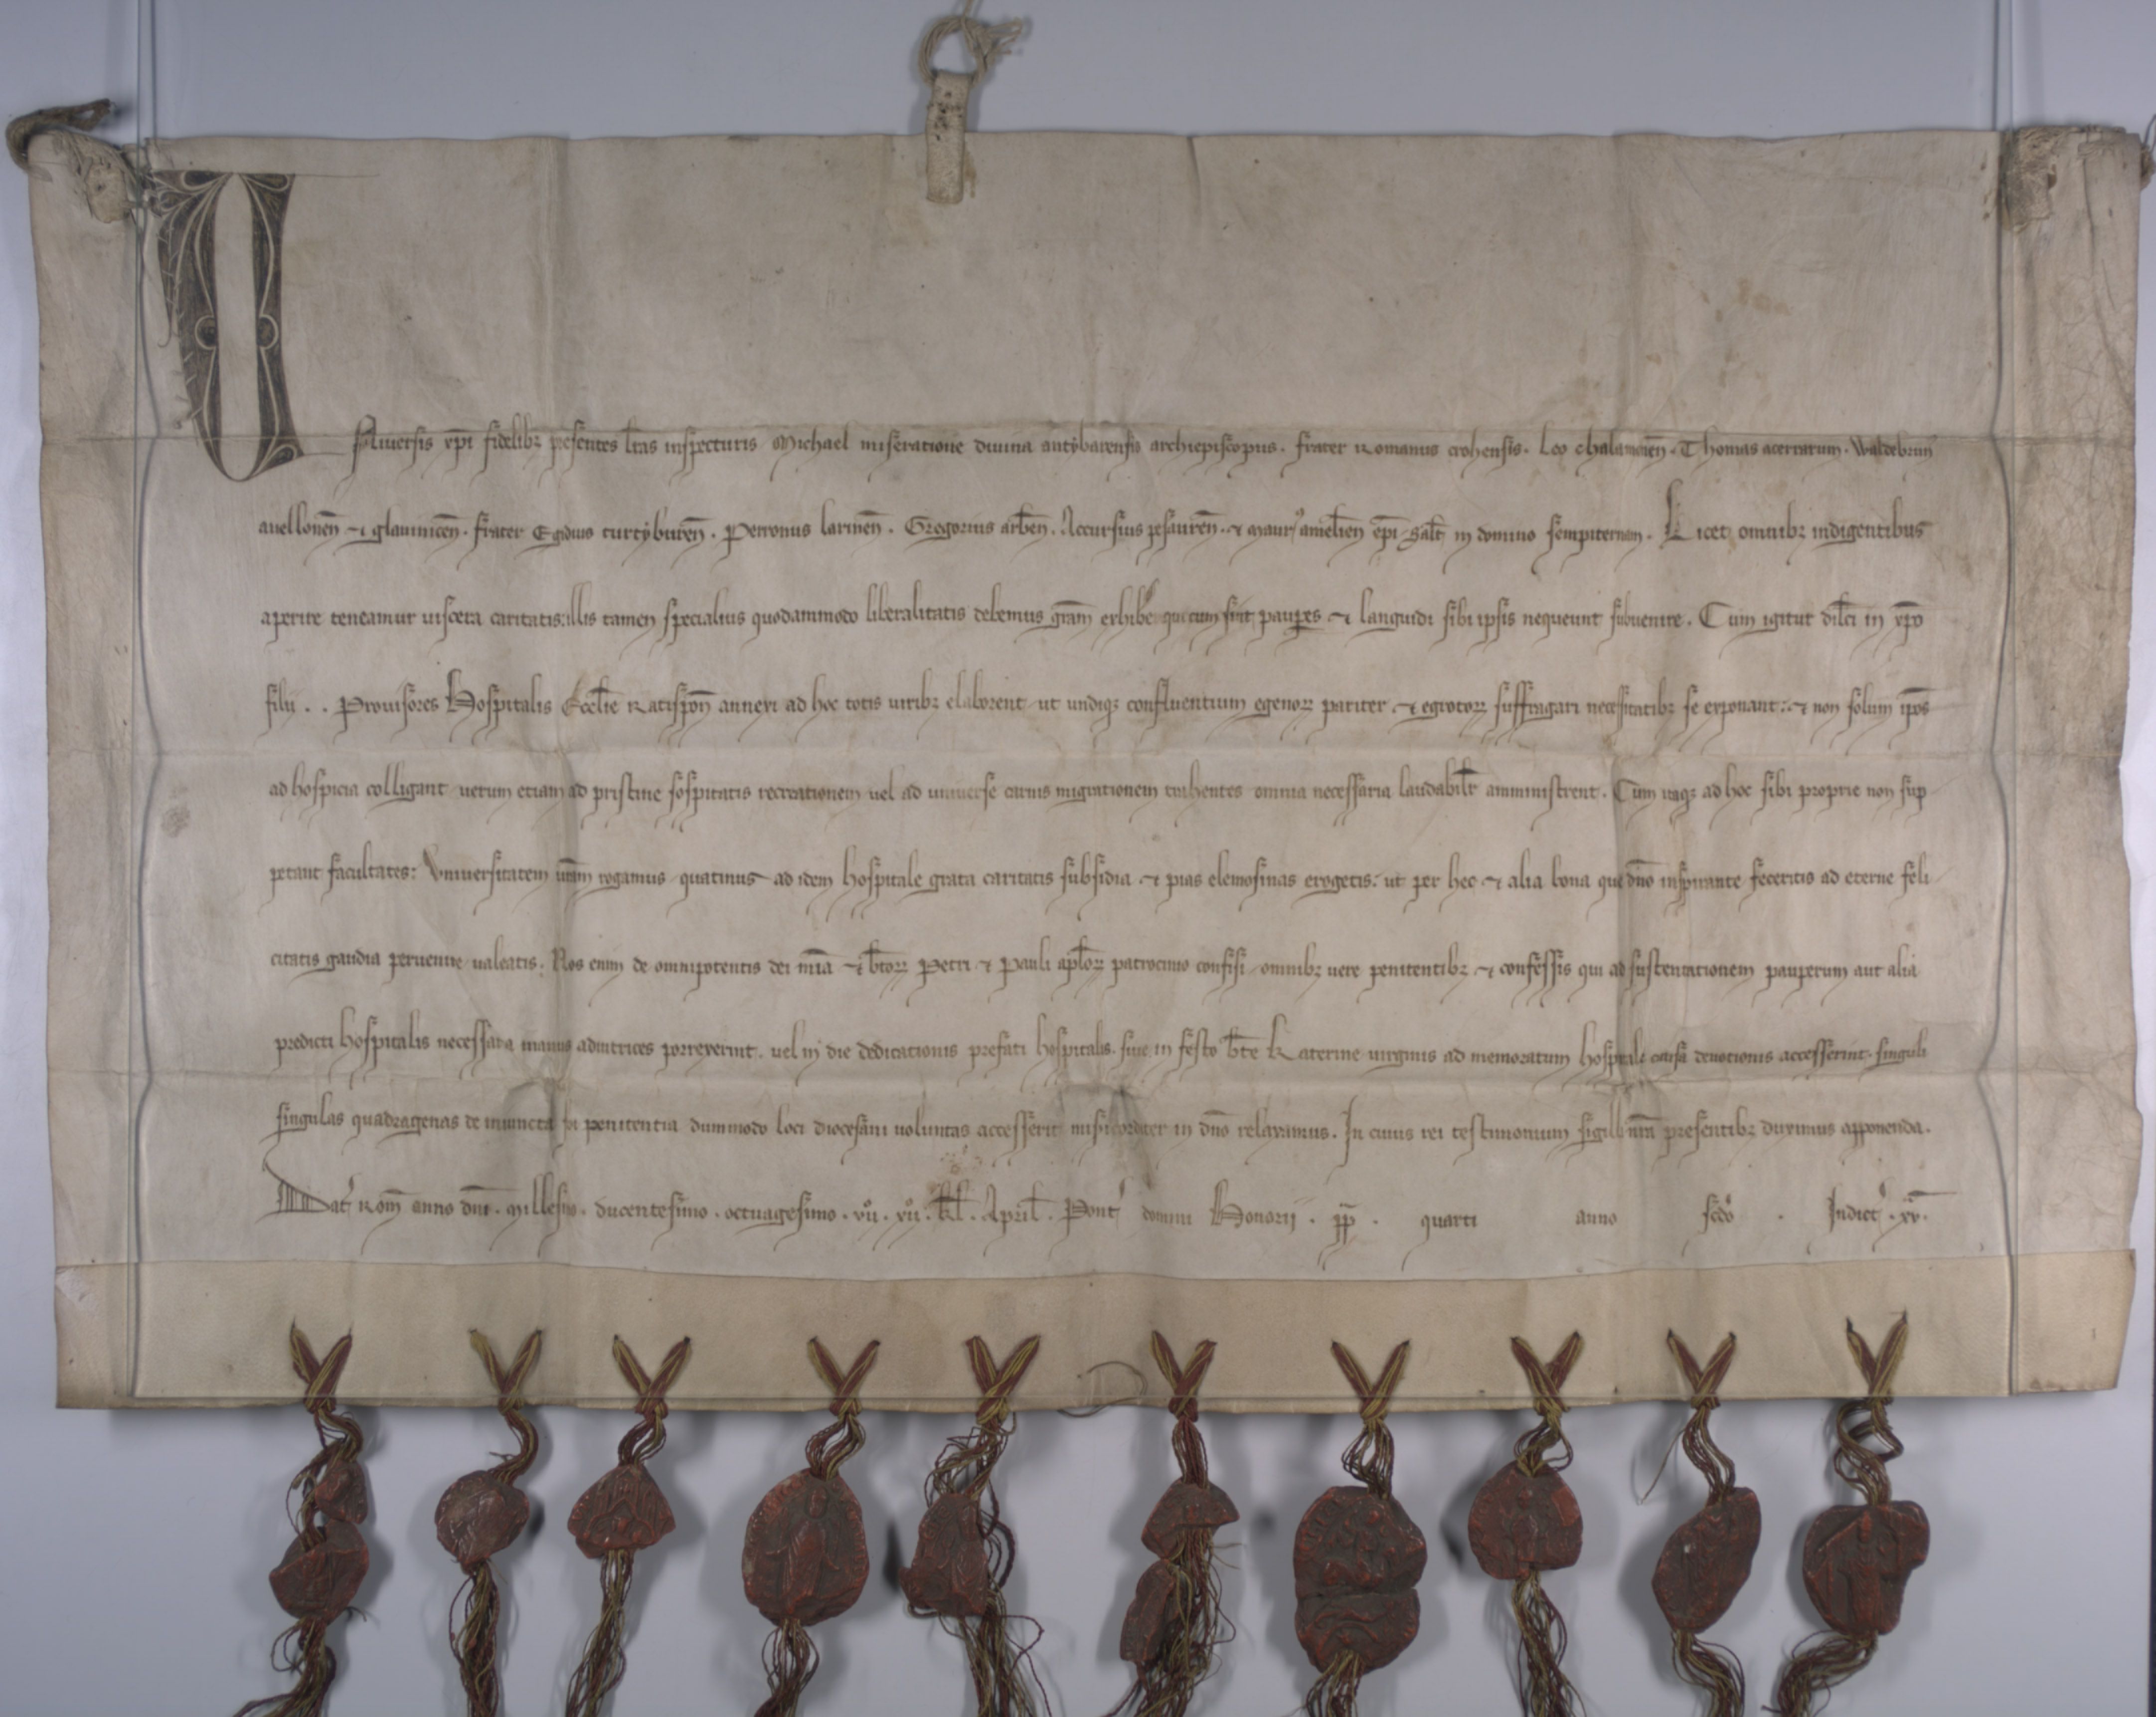 UNiuersis xp̄i fidelibꝫ presentes l̄ras inspecturis Michael miseratione diuina antybarensis archiepiscopus. frater Romanus crohensis. Leo chalamonen̄. Thomas acerrarum. Waldebrun
auellonen̄ ⁊ glauinicen̄. frater Egidius turtybulen̄. Perronus larinen̄. Gregorius arben̄. Accursius pesauren̄. ⁊ Maurꝰ amelien̄ ep̄i sal̄t in domino sempiternam. Licet omnibꝫ indigentibus
aperire teneamur uiscera caritatis: illis tamen specialius quodammodo liberalitatis debemus grām exhibere qui cum sint pauꝑes ⁊ languidi sibi ipsis nequeunt subuenire. Cum igitur dil̄ci in xp̄o
filii . . Prouisores Hospitalis Eccl̄ie Ratispon̄ annexi ad hoc totis uiribꝫ elaborent ut undiqꝫ confluentium egenoꝝ pariter ⁊ egrotoꝝ suffragari necessitatibꝫ se exponant: ⁊ non solum ip̄os
ad hospicia colligant uerum etiam ad pristine sospitatis recreationem uel ad uniuerse carnis migrationem exhibentes omnia necessaria laudabilr̄ amministrent. Cum itaqꝫ ad hoc sibi proprie non sup
petant facultates: Vniuersitatem ur̄am rogamus quatinus ad idem hospitale grata caritatis subsidia ⁊ pias elemosinas erogetis: ut per hec ⁊ alia bona que dn̄o inspirante feceritis ad eterne feli
citatis gaudia peruenire ualeatis. Nos enim de omnipotentis dei mīa ⁊ b̄toꝝ Petri ⁊ Pauli apl̄oꝝ patrocinio confisi omnibꝫ uere penitentibꝫ ⁊ confessis qui ad sustentationem pauperum aut alia
predicti hospitalis necessaria manus adiutrices porrexerint. uel in die dedicationis prefati hospitalis. siue in festo b̄te Katerine uirginis ad memoratum hospitale causa deuotionis accesserint. singuli
singulas quadragenas de iniuncta s̄i penitentia dummodo loci diocesani uoluntas accesserit misericorditer in dn̄o relaxamus. In cuius rei testimonium sigilla nr̄a presentibꝫ duximus apponenda.
Dat̄ Rom̄ anno dn̄i. Millesimo. ducentesimo. octuagesimo. vııͦ. xvııͦ. kl̄. April̄. Pont̄ domini Honorij. pp̄. quarti anno scd̄o. Indict̄. xv̄.